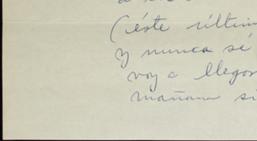 (éste últim
y nunca sé
voy a llegar
mañana si